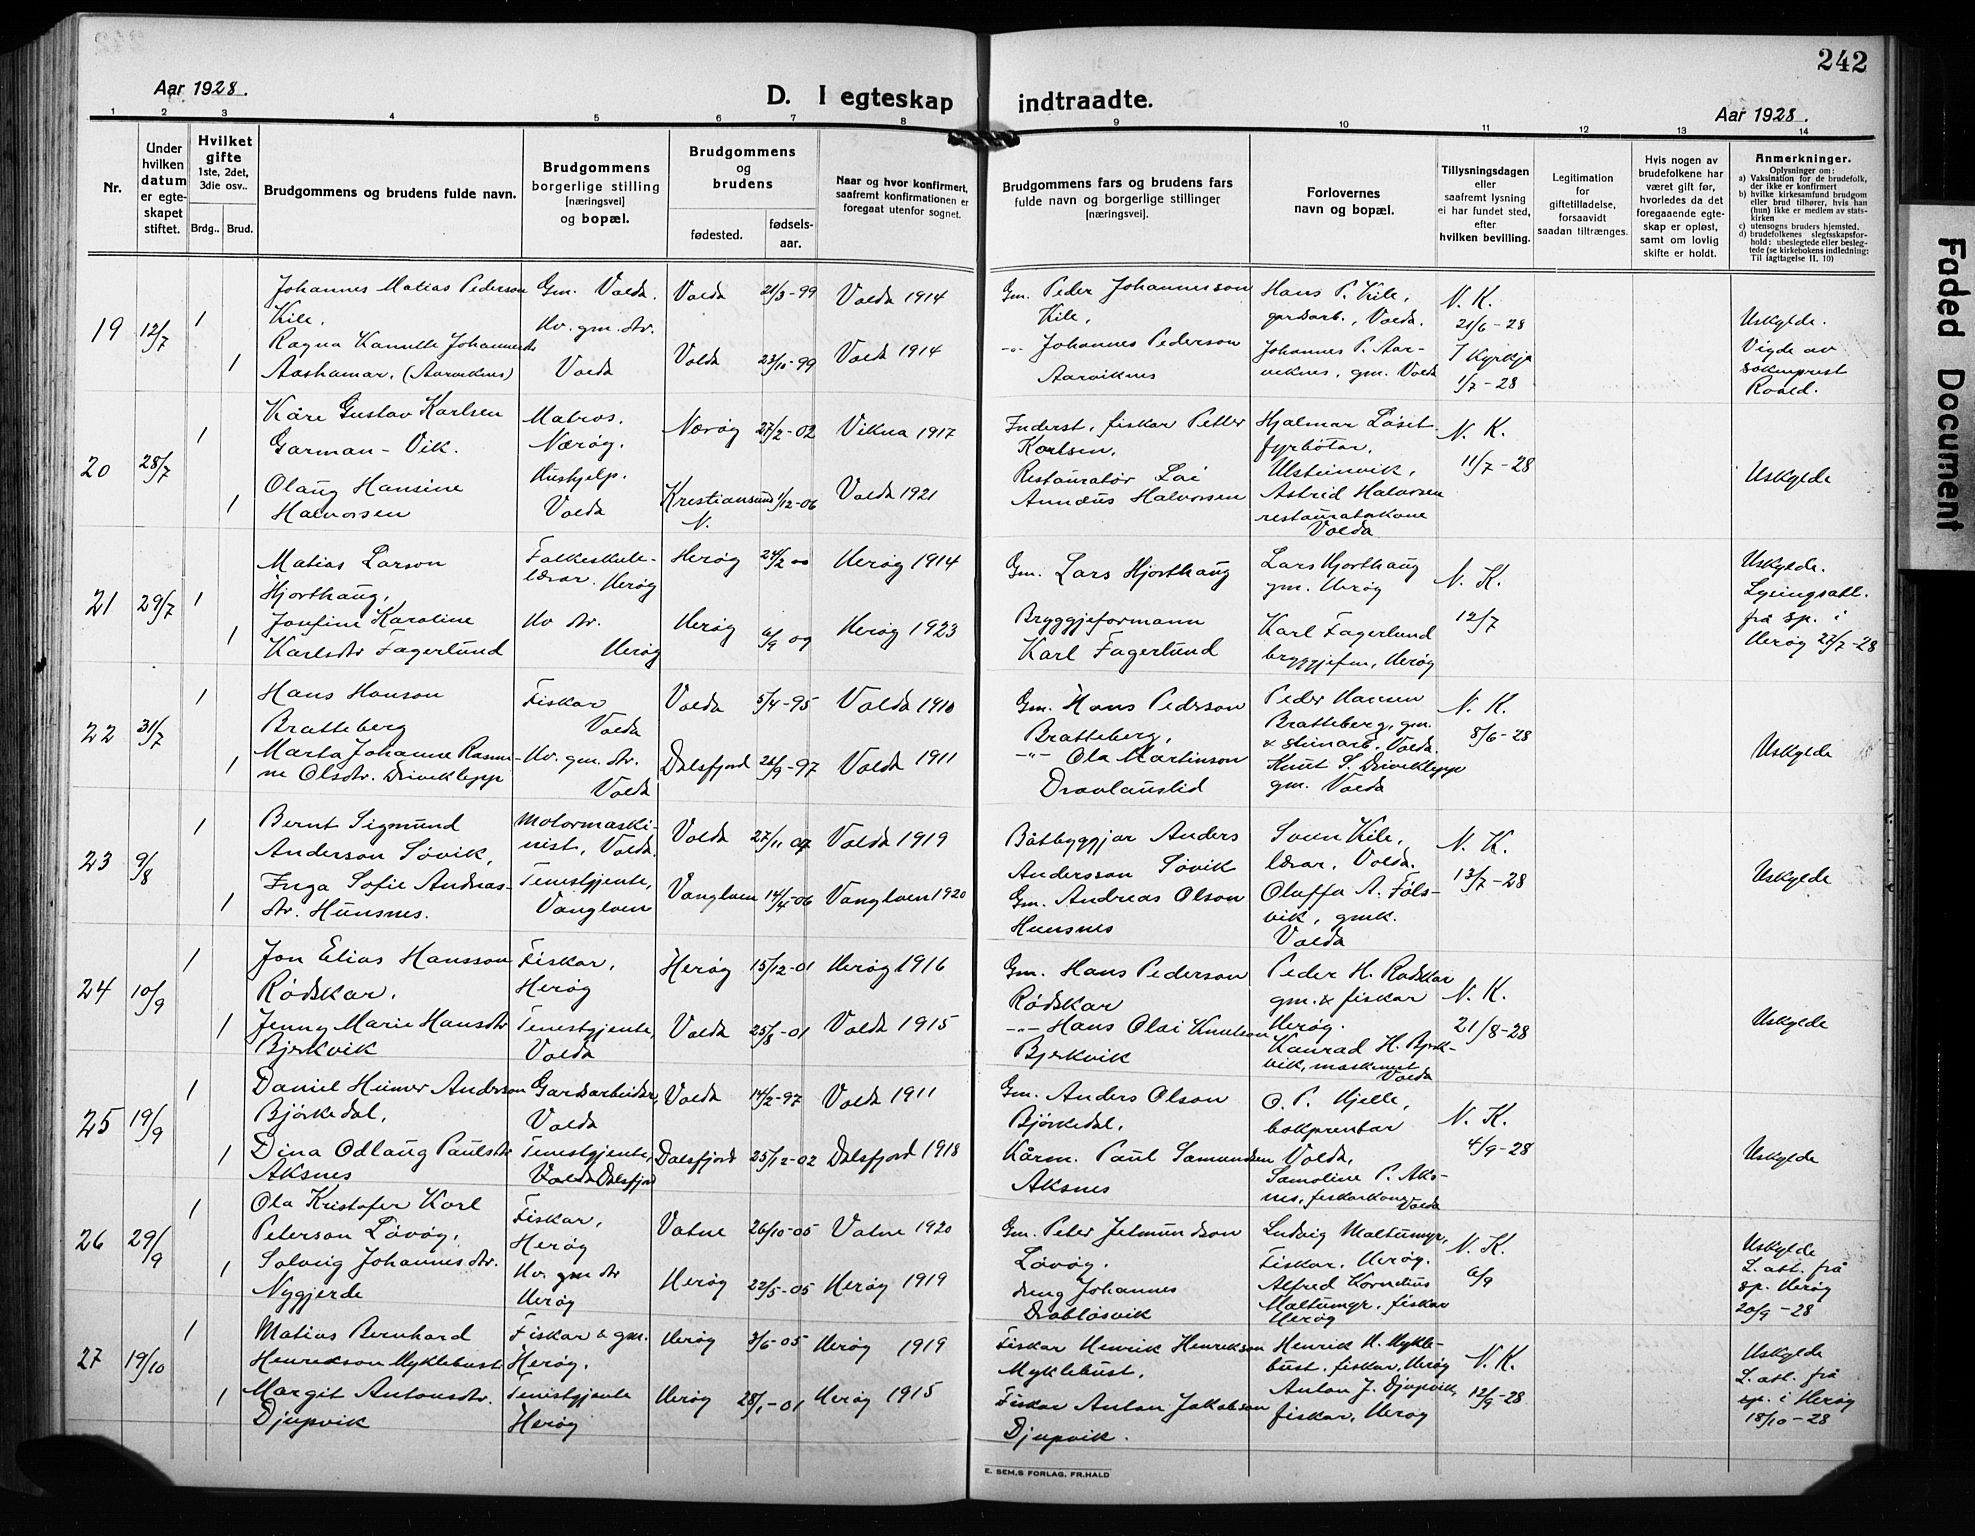 242
Aar 1928.
D. I egteskap indtraadte.
Aar 1928.
1 2 3 4 5 6 7 8 9 10 11 12 13 14
Nr.
Under hvilken datum er egte-skapet stiftet.
Hvilket gifte
1ste, 2det, 3die osv..
Brdg.. Brud.
Brudgommens og brudens fulde navn.
Brudgommens borgerlige stilling [næringsvei] og bopæl.
Brudgommens og brudens
fødested.
fødsels-aar.
Naar og hvor konfirmert, saafremt konfirmationen er foregaat utenfor sognet.
Brudgommens fars og brudens fars fulde navn og borgerlige stillinger [næringsvei].
Forlovernes navn og bopæl.
Tillysningsdagen eller saafremt lysning ei har fundet sted, efter hvilken bevilling.
Legitimation for giftetilladelse, forsaavidt saadan tiltrænges.
Hvis nogen av brudefolkene har været gift før, hvorledes da det foregaaende egte-skap er opløst, samt om lovlig skifte er holdt.
Anmerkninger.
Oplysninger om:
a) Vaksination for de brudefolk, der ikke er konfirmert
b) hvilke kirkesamfund brudgom eller brud tilhører, hvis han (hun) ikke er medlem av stats-kirken
c) utensogns bruders hjemsted.
d) brudefolkenes slegtsskapsfor-hold: ubeslegtede eller besleg-tede (se kirkebokens indledning: Til iagttagelse II, 10)
19 12/7 1 Johannes Matias Pederson Kile, Gm. Volda. Volda 21/3-99 Volda 1914 Gm. Peder Johannesson Kile, Hans P. Kile, gardsarb., Volda. N. K. 21/6-28 Uskylde.
1 Ragna Kamille Johannesdtr Aashamar, (Aarviknes) Uv. gm. dtr. Volda Volda 23/10-99 Volda 1914 -"- Johannes Pederson Aarviknes Johannes P. Aarviknes, gm. Volda I Kyrkja 1/7-28 Vigde av sokneprest Roald.
20 28/7 1 Kåre Gustav Karlsen Garman-Vik. Matros. Nærøy. Nærøy 27/2-02 Vikna 1917 Inderst, fiskar Petter Karlsen, Hjalmar Løset fyrbøtar, Ulsteinvik, N. K. 11/7-28 Uskylde
1 Olaug Hansine Halvorsen Hushjelp. Volda Kristiansund N. 1/12-06 Volda 1921 Restauratør Annæus Halvorsen Astrid Halvorsen restauratørkone Volda
21 29/7 1 Matias Larson Hjorthaug, Folkeskule-lærar. Herøy Herøy 24/2 00 Herøy 1914 Gm. Lars Hjorthaug Lars Hjorthaug gm. Herøy N. K. 12/7 Uskylde. Lysingsatt. frå sp. i Herøy 27/7-28
1 Josefine Karoline Karlsdtr Fagerlund Uv dtr. Herøy Herøy 6/9 09 Herøy 1923 Bryggjeformann Karl Fagerlund Karl Fagerlund bryggjefm, Herøy
22 31/7 1 Hans Hanson Bratteberg Fiskar Volda Volda 5/4-95 Volda 1910 Gm. Hans Pederson Bratteberg, Peder Hansen Bratteberg, gm. & steinarb. Volda. N. K. 8/6-28 Uskylde
1 Marta Johanne Rasmine Olsdtr. Driveklepp Uv. gm. dtr. Volda Dalsfjord 21/9-97 Volda 1911 -"- Ola Martinson Dravlauslid Knut S. Driveklepp gm. Volda
23 9/8 1 Bernt Sigmund Anderson Søvik, Motormaskinist, Volda. Volda 27/11 04 Volda 1919 Båtbyggjar Anders Andersson Søvik Sven Kile, lærar, Volda. N. K. 13/7-28 Uskylde
1 Inga Sofie Andreasdtr. Hunsnes. Tenestgjente, Vanylven Vanylven 14/4-06 Vanylven 1920 Gm. Andreas Olson Hunsnes Oluffa A. Følsvik, gmk. Volda
24 10/9 1 Jon Elias Hansson Rødskar. Fiskar, Herøy Herøy 15/12-01 Herøy 1916 Gm. Hans Pederson Rødskar Peder H. Rødskar gm. & fiskar Herøy. N. K. 21/8-28 Uskylde
1 Jenny Marie Hansdtr Bjerkvik Tenestgjente, Volda Volda 25/8-01 Volda 1915 -"- Hans Olai Knutson Bjerkvik Konrad H. Bjerkvik, maskinist Volda
25 19/9 1 Daniel Heimer Anderson Bjørkedal, Gardsarbeider, Volda Volda 14/2-97 Volda 1911 Gm. Anders Olson Bjørkedal, O. P. Hjelle, bokprentar Volda, N. K. 4/9-28 Uskylde
1 Dina Odlaug Paulsdtr Aksnes Tenestgjente, Volda Dalsfjord Dalsfjord 25/12-02 Dalsfjord 1918 Kårm. Paul Samundsen Aksnes Samoline P. Aksnes, fiskarkone Volda
26 29/9 1 Ola Kristofer Karl Peterson Løvøy, Fiskar, Herøy Vatne 26/10-05 Vatne 1920 Gm. Peter Jetmundson Løvøy. Ludvig Maltumyr, Fiskar, Herøy. N. K. 6/9 Uskylde L. att. frå sp. Herøy 20/9-28
1 Solveig Johannesdtr. Nygjerde Uv. gm dtr Herøy Herøy 22/5-05 Herøy 1919 Johannes Drabløsvik Alfred Kornelius Maltumyr, fiskar Herøy
27 19/10 1 Matias Bernhard Henrikson Myklebust Fiskar & gm. Herøy. Herøy 3/6-05 Herøy 1919 Fiskar Henrik Henrikson Myklebust, Henrik H. Myklebust, fiskar, Herøy N. K. 12/9-28 Uskylde L. att. frå sp. i Herøy 18/10-28
1 Margit Antonsdtr. Djupvik Tenestgjente Herøy Herøy 28/1-01 Herøy 1915 Fiskar Anton Jakobson Djupvik. Anton J. Djupvik fiskar, Herøy
E. SEM.S FORLAG, FR.HALD
Faded Document